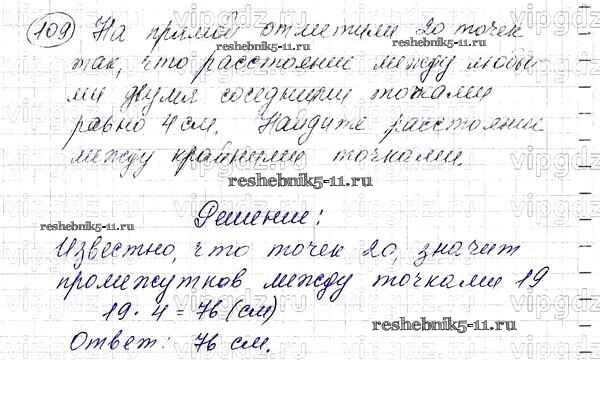 109 На прямой отметили 20 точек
reshebnik5-11.ru
так, что расстояние между любы
ми двумя соседними точками
равно 4 см. Найдите расстояние
между крайними точками.
reshebnik5-11.ru
Решение:
reshebnik5-11.ru
Известно, что точек 20, значит
промежутков между точками 19
19 · 4 = 76 (см)
reshebnik5-11.ru
Ответ: 76 см.